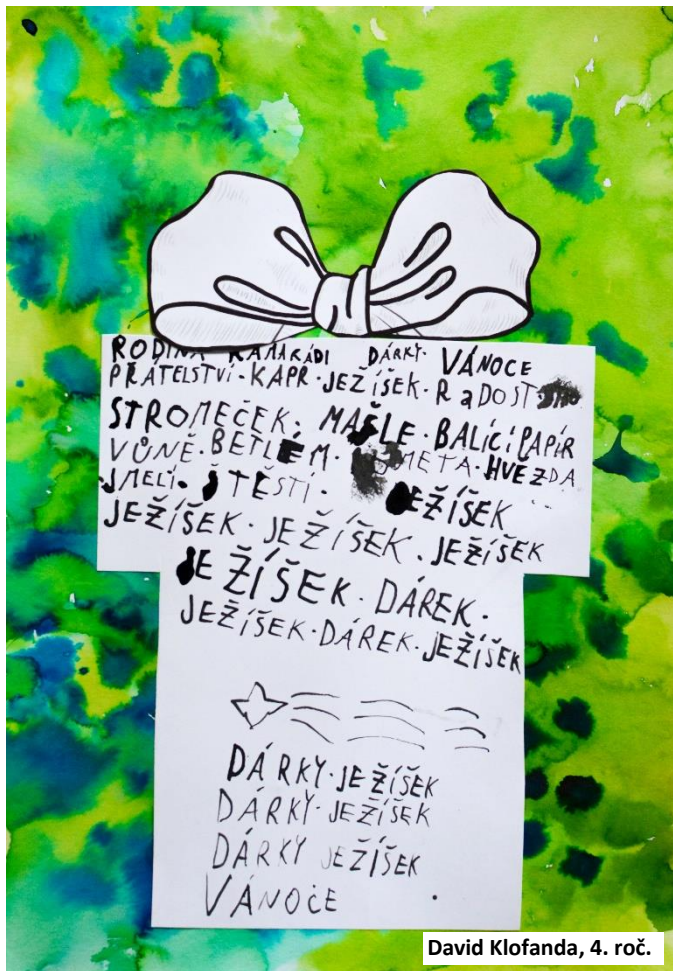 RODINA KAMARÁDI DÁRKY· VÁNOCE
PŘÁTELSTVÍ·KAPR·JEŽÍŠEK·RaDOST
STROMEČEK· MAŠLE·BALÍCÍ PAPÍR
VŮNĚ·BETLÉM· META·HVĚZDA
JMELÍ·ŠTĚSTÍ· JEŽÍŠEK
JEŽÍŠEK·JEŽÍŠEK·JEŽÍŠEK
JEŽÍŠEK·DÁREK·
JEŽÍŠEK·DÁREK·JEŽÍŠEK
DÁRKY·JEŽÍŠEK
DÁRKY·JEŽÍŠEK
DÁRKY JEŽÍŠEK
VÁNOCE
David Klofanda, 4. roč.